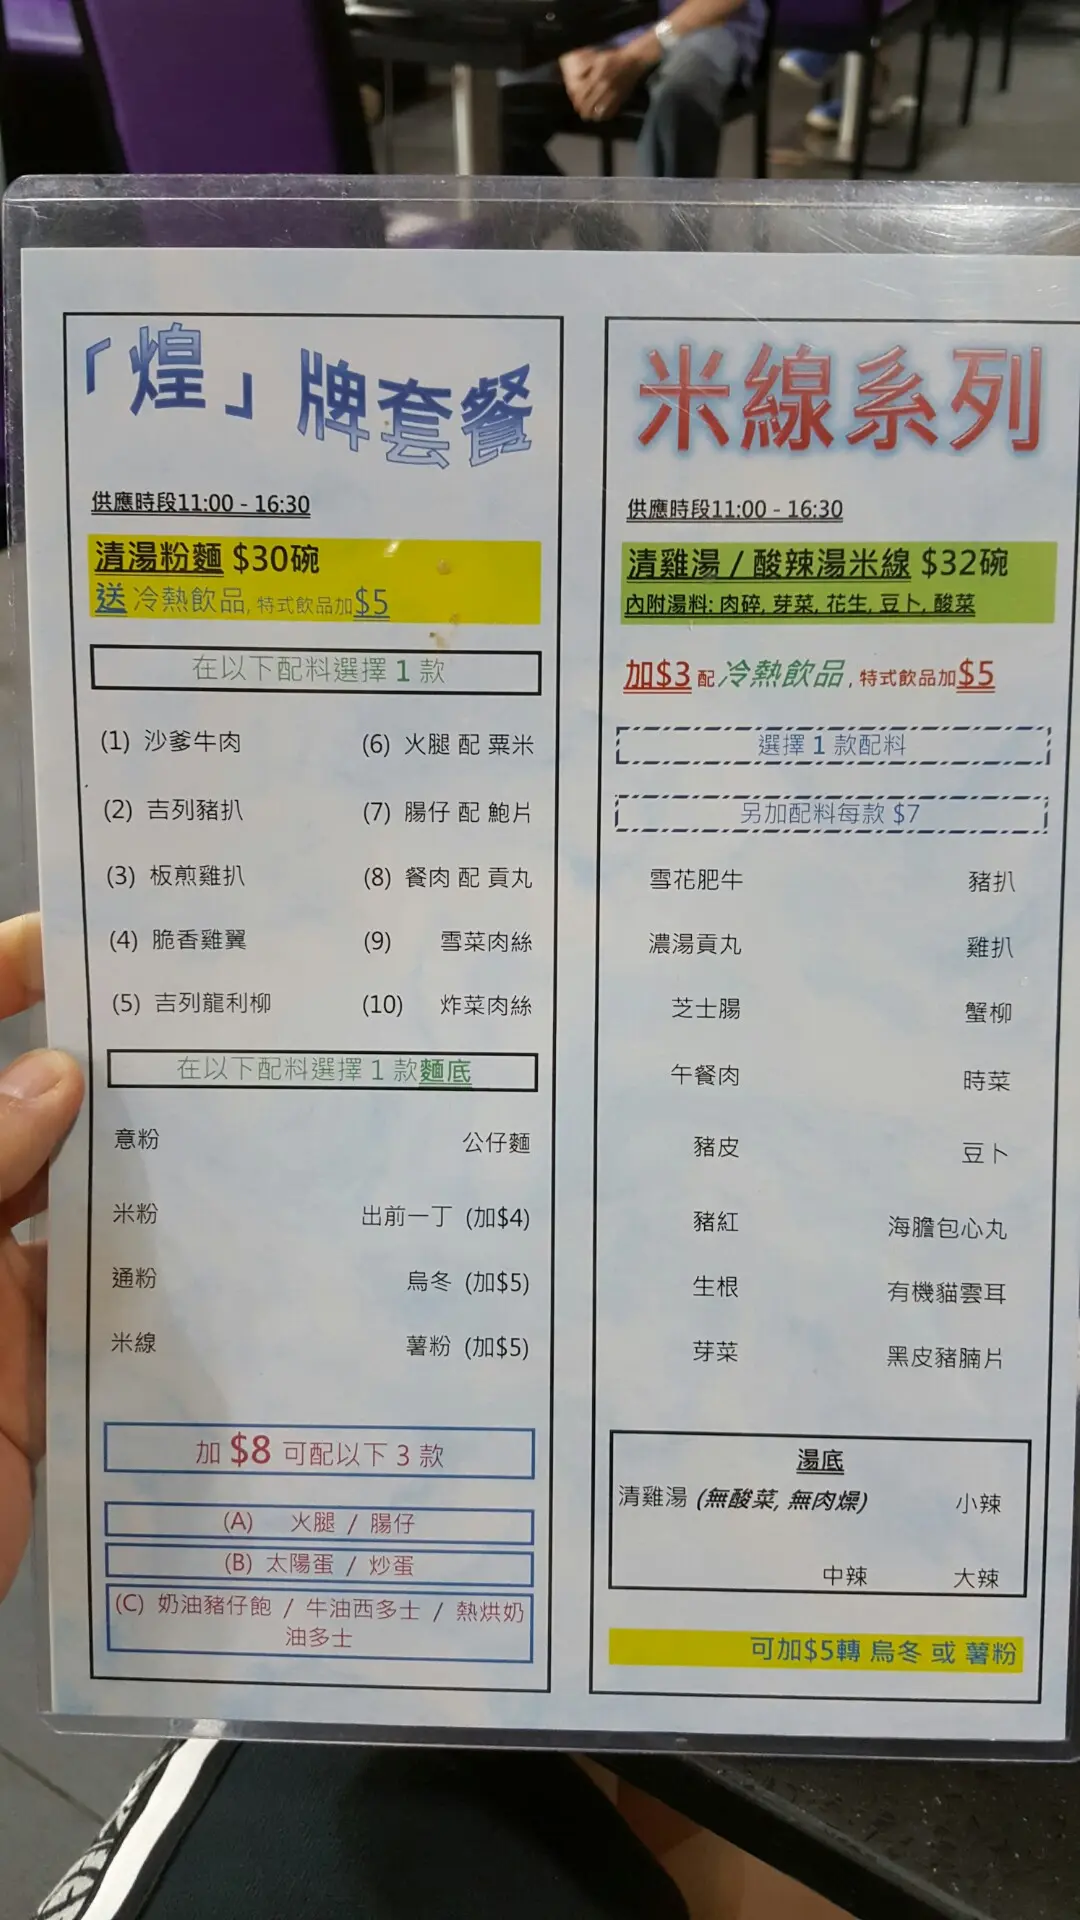 「煌」牌套餐
供應時段11:00 - 16:30
清湯粉麵 $30碗
送 冷熱飲品, 特式飲品加$5
在以下配料選擇 1 款
(1) 沙爹牛肉 (6) 火腿 配 粟米
(2) 吉列豬扒 (7) 腸仔 配 鮑片
(3) 板煎雞扒 (8) 餐肉 配 貢丸
(4) 脆香雞翼 (9) 雪菜肉絲
(5) 吉列龍利柳 (10) 炸菜肉絲
在以下配料選擇 1 款麵底
意粉 公仔麵
米粉 出前一丁 (加$4)
通粉 烏冬 (加$5)
米線 薯粉 (加$5)
加 $8 可配以下 3 款
(A) 火腿 / 腸仔
(B) 太陽蛋 / 炒蛋
(C) 奶油豬仔飽 / 牛油西多士 / 熱烘奶
油多士
米線系列
供應時段11:00 - 16:30
清雞湯 / 酸辣湯米線 $32碗
內附湯料: 肉碎, 芽菜, 花生, 豆卜, 酸菜
加$3 配 冷熱飲品, 特式飲品加$5
選擇 1 款配料
另加配料每款 $7
雪花肥牛 豬扒
濃湯貢丸 雞扒
芝士腸 蟹柳
午餐肉 時菜
豬皮 豆卜
豬紅 海膽包心丸
生根 有機貓雲耳
芽菜 黑皮豬腩片
湯底
清雞湯 (無酸菜, 無肉燥) 小辣
中辣 大辣
可加$5轉 烏冬 或 薯粉